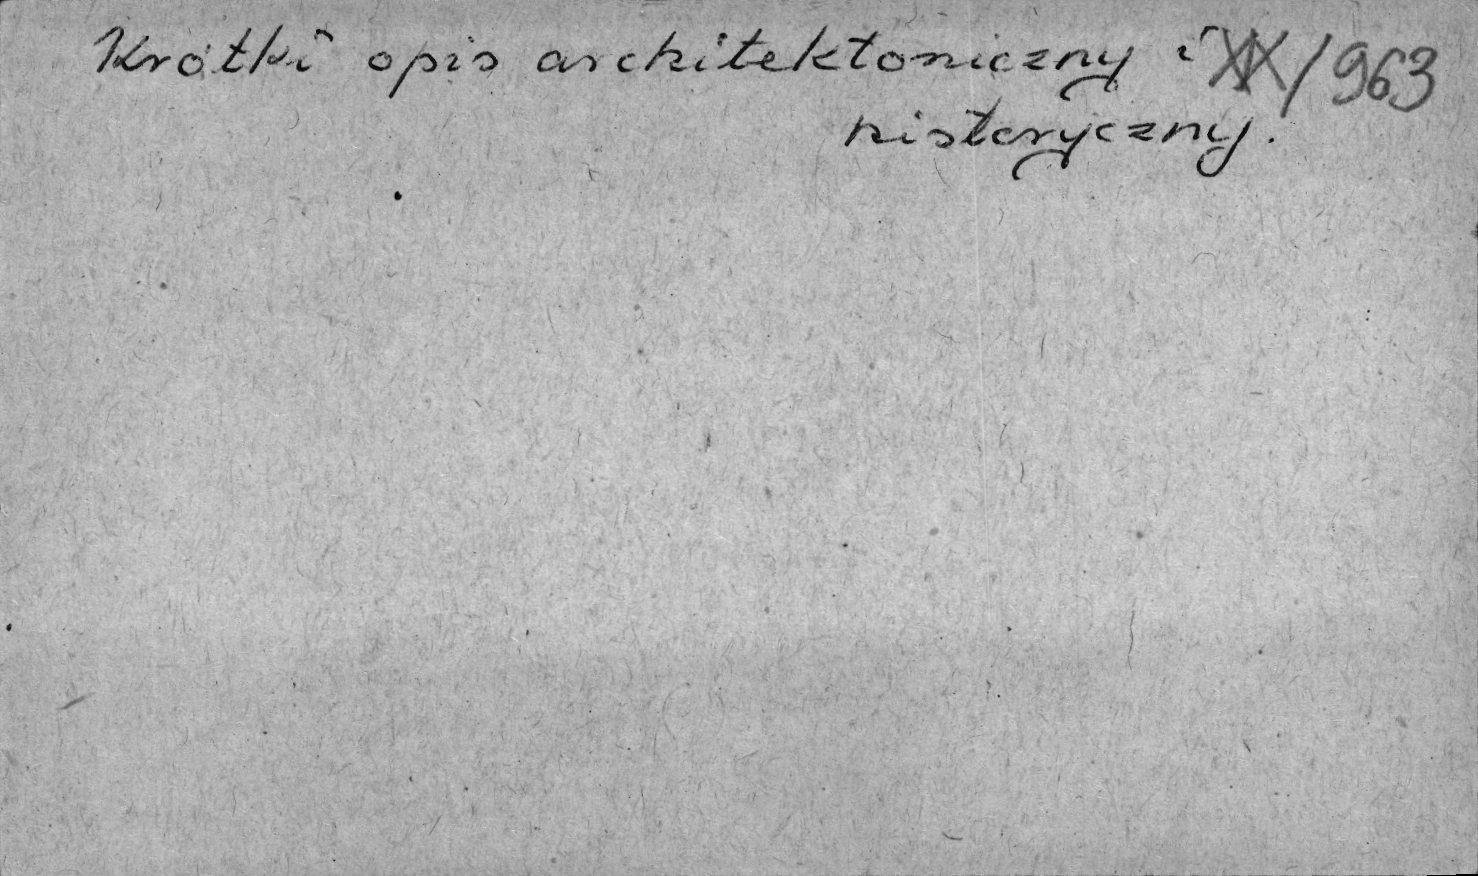 Krótki opis architektoniczny i XIX/963
historyczny.